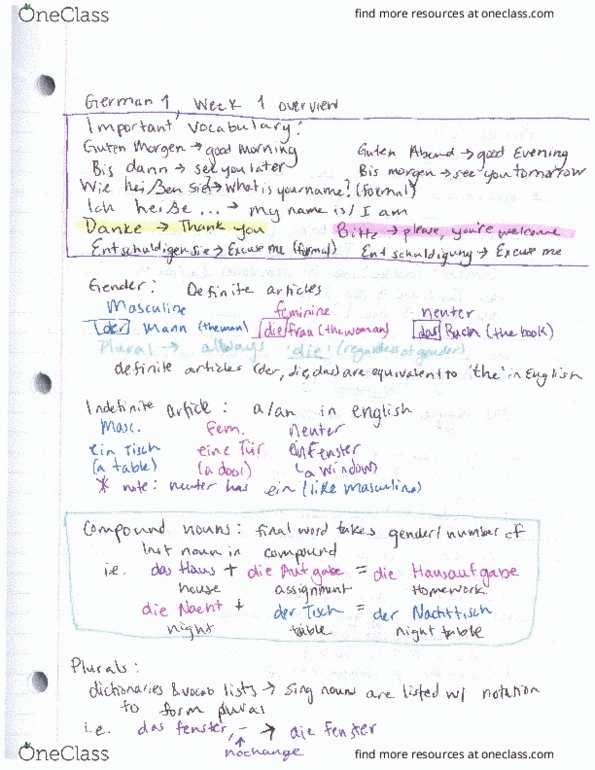 OneClass find more resources at oneclass.com
German 1, Week 1 overview
Important vocabulary:
Guten Morgen → good morning Guten Abend → good Evening
Bis dann → see you later Bis morgen → see you tomorrow
Wie heißen Sie? → what is your name? (formal)
Ich heiße ... → my name is / I am
Danke → Thank you Bitte → please, you're welcome
Entschuldigen Sie → Excuse me (formal) Entschuldigung → Excuse me
Gender: Definite articles
Masculine feminine neuter
der Mann (the man) die Frau (the woman) das Buch (the book)
Plural → allways 'die' (regardless of gender)
definite articles (der, die, das) are equivalent to 'the' in English
Indefinite article: a/an in english
Masc. fem. neuter
ein Tisch eine Tür ein Fenster
(a table) (a door) (a window)
* note: neuter has ein (like masculine)
Compound nouns: final word takes gender/number of
last noun in compound
i.e. das Haus + die Aufgabe = die Hausaufgabe
house assignment Homework
die Nacht + der Tisch = der Nachttisch
night table night table
Plurals:
dictionaries & vocab lists → sing nouns are listed w/ notation
to form plural
i.e. das fenster, - → die fenster
nochange
OneClass find more resources at oneclass.com